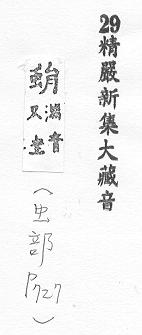 29精嚴新集大藏音
蛸
消音
又
（虫部P727）